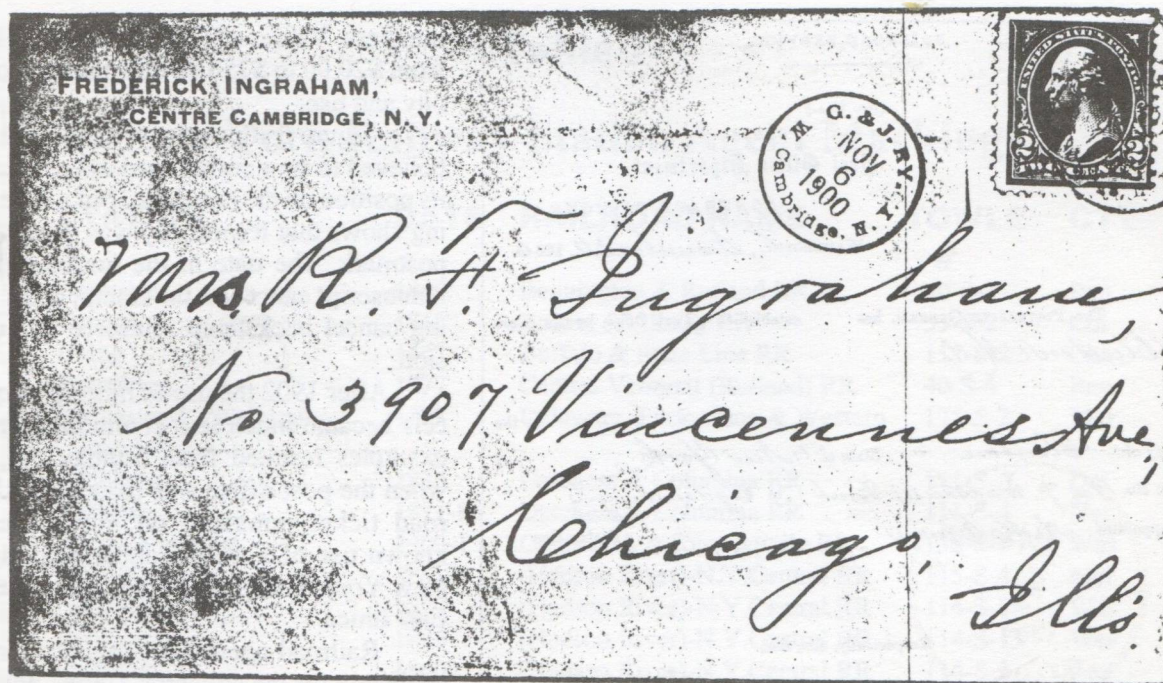 FREDERICK INGRAHAM,
CENTRE CAMBRIDGE, N. Y.
G. & J. RY.
NOV
6
1900
W. Cambridge, N. Y.
UNITED STATES POSTAGE
2 2
Mrs. R. F. Ingraham,
No. 3907 Vincennes Ave,
Chicago,
Ills